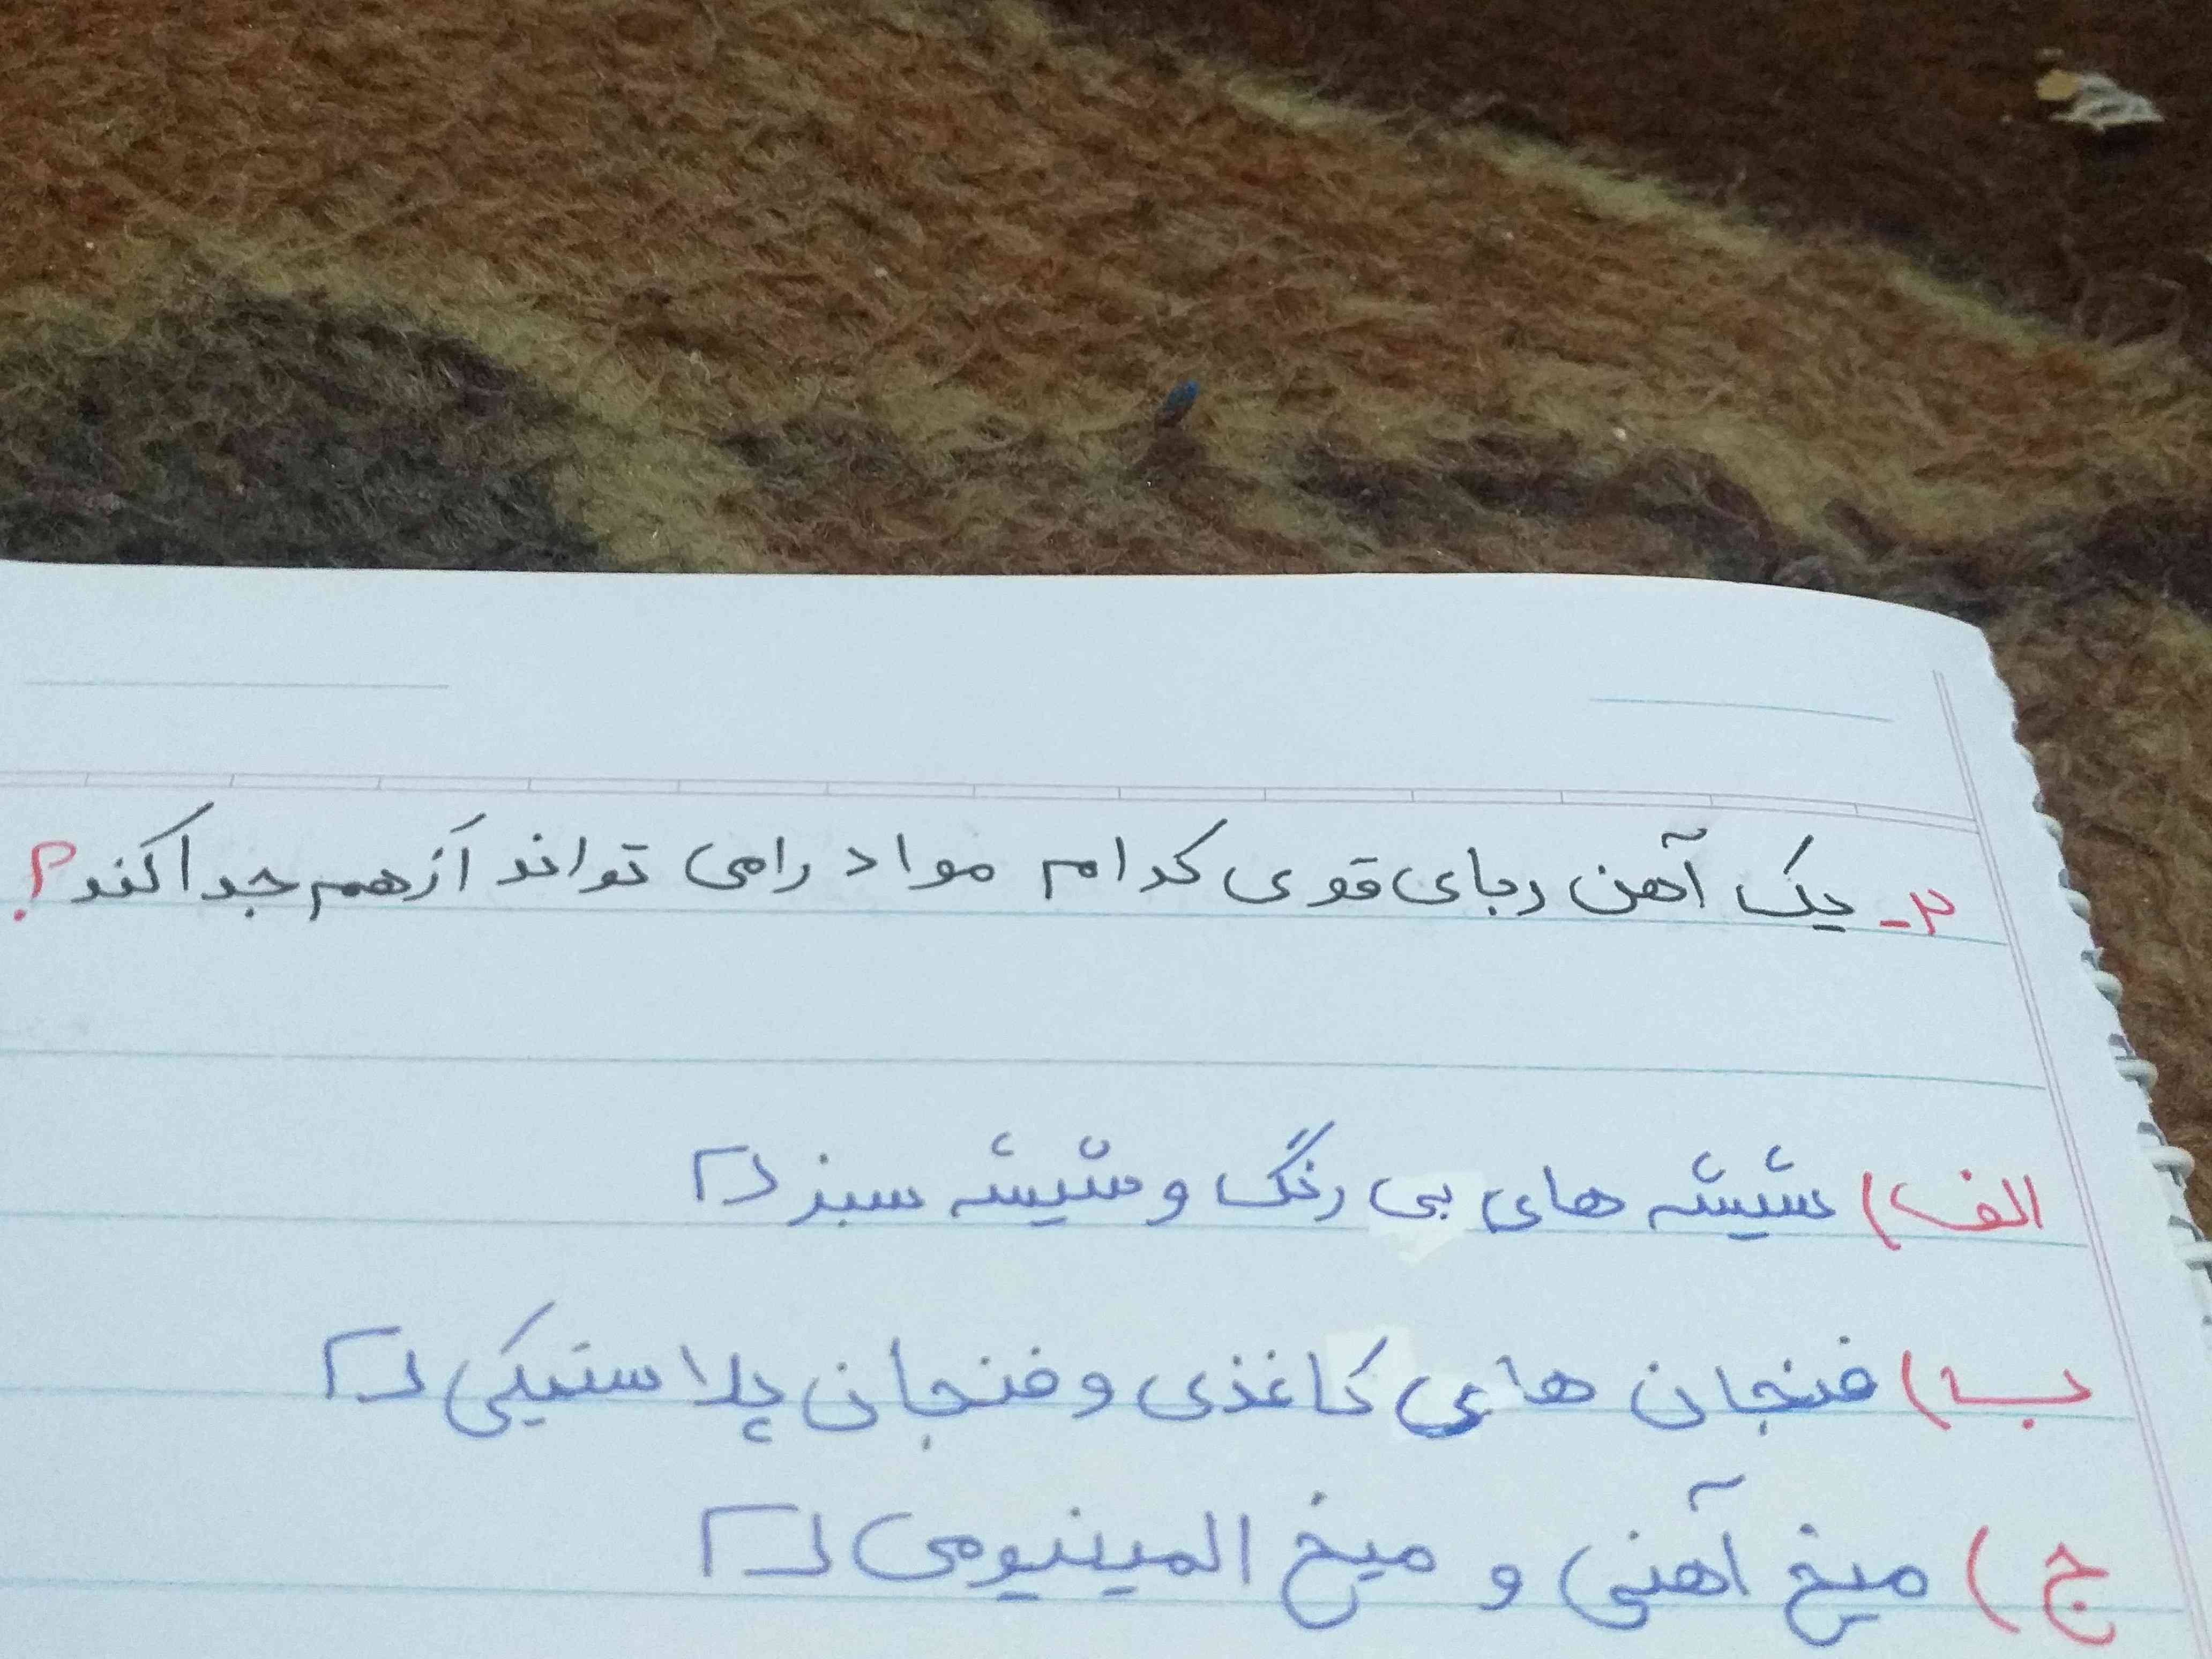 ۲- یک آهن ربای قوی کدام مواد را می تواند از هم جدا کند؟
الف) شیشه های بی رنگ و شیشه سبز
ب) فنجان های کاغذی و فنجان پلاستیکی
ج) میخ آهنی و میخ المینیومی